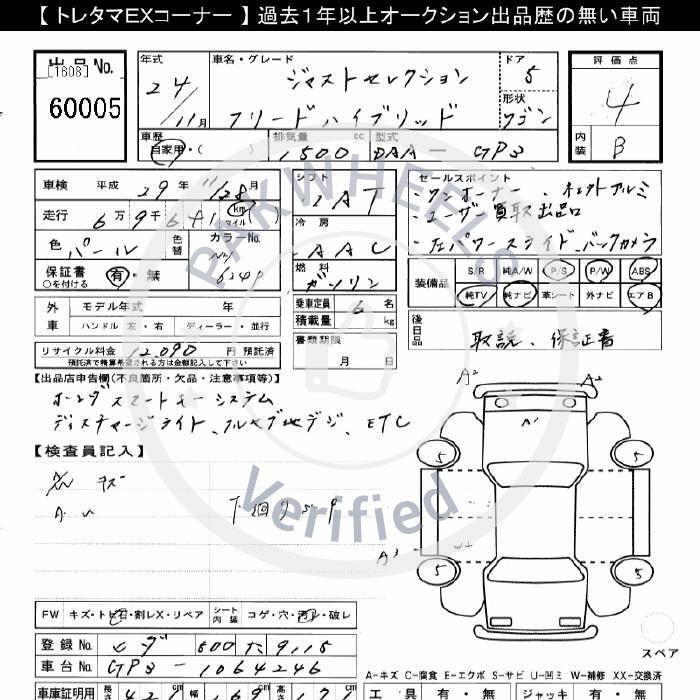 【 トレタマEXコーナー 】 過去１年以上オークション出品歴の無い車両
出品No.
[1608]
60005
年式
24/11月
車名・グレード
ジャストセレクション
フリードハイブリッド
ドア
5
形状
ワゴン
評価点
4
内装
B
車歴
自家用・( )
排気量 cc
1500
型式
DAA-GP3
車検 平成 29年 11/28月
走行 6万9千6 km マイル( )
色 パール
色替
カラーNo.
624P
保証書 有・無
○を付ける
シフト
AT
冷房
AAC
燃料
ガソリン
乗車定員 6名
積載量 kg
書類期限
月 日
セールスポイント
・ワンオーナー ・ 社外アルミ
・ユーザー買取出品
・左パワースライド・バックカメラ
装備品
S/R 純A/W P/S P/W ABS
純TV 純ナビ 革シート 外ナビ エアB
後日品
取説、保証書
外車
モデル年式 年
ハンドル 左・右 ディーラー・並行
リサイクル料金 12,090 円 預託済
預託済で精算希望される方は金額記入して下さい
【出品店申告欄(不良箇所・欠品・注意事項等)】
ホンダスマートキーシステム
ディスチャージライト、フルセグ地デジ、ETC
【検査員記入】
下回りサビ
A2
A2
A1
5
5
A3
U1
5
5
PAKWHEELS
Verified
FW キズ・トビ石・割レX・リペア
シート内装 コゲ・穴・汚レ・破レ
登録No. 500 た 9115
車台No. GP3-1064246
スペア
A-キズ C-腐食 E-エクボ S-サビ U-凹ミ W-補修 XX-交換済
車庫証明用
長さ
cm
幅
169
cm
高さ
cm
工具 有・無
ジャッキ 有・無